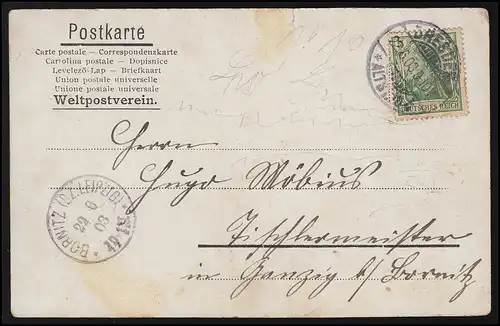 Postkarte
Carte postale – Correspondenzkarte
Cartolina postale – Dopisnice
Levelező-Lap – Briefkaart
Union postale universelle
Unione postale universale
Weltpostverein.
DRESDEN
DEUTSCHES REICH
Herrn
Hugo Möbius
Tischlermeister
in Ganzig b/ Bornitz
BORNITZ (BZ. LEIPZIG)
29 6
03